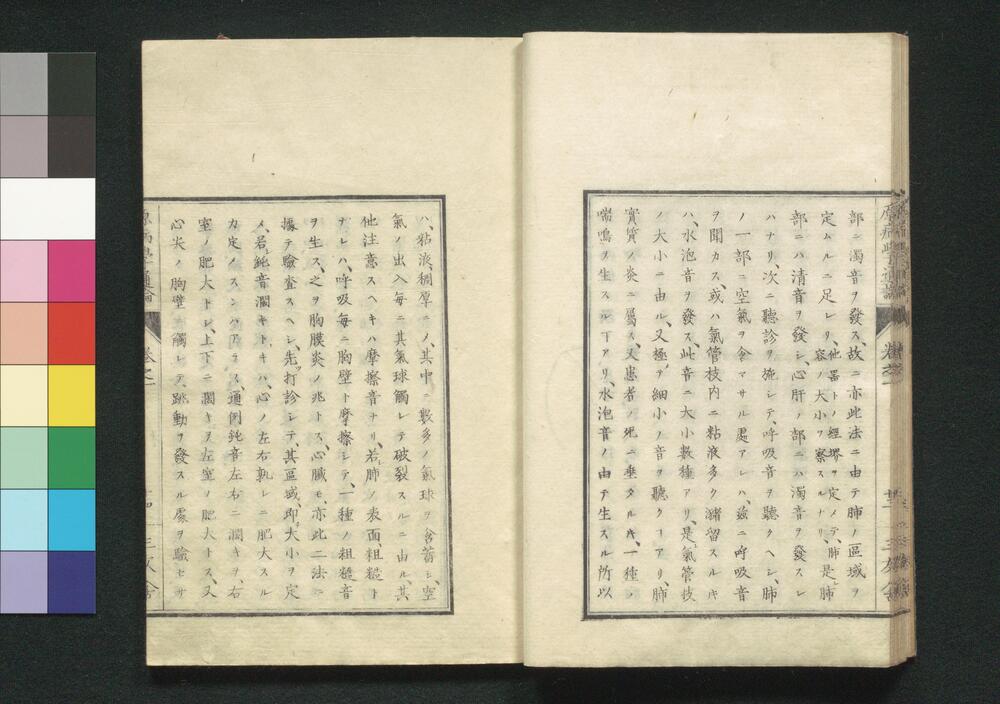 部ニ濁音ヲ發ス、故ニ亦此法ニ由テ肺ノ區域ヲ
定ムルニ足レリ、他器トノ經堺ヲ定メテ、肺容ノ大小ヲ察スルナリ、是肺
部ニハ清音ヲ發シ、心肝ノ部ニハ濁音ヲ發スレ
ハナリ、次ニ聽診ヲ施シテ、呼吸音ヲ聽クヘシ、肺
ノ一部ニ空氣ヲ含マサル處アレハ、茲ニ呼吸音
ヲ聞カス、或ハ氣管枝内ニ粘液多ク瀦留スルキ
ハ、水泡音ヲ發ス、此音ニ大小數種アリ、是氣管枝
ノ大小ニ由ル、又極テ細小ノ音ヲ聽クヿアリ、肺
實質ノ炎ニ屬ス、又患者ノ死ニ垂タルキ、一種ノ
喘鳴ヲ生スルヿアリ、水泡音ノ由テ生スル所以
ハ、粘液稠厚ニノ、其中ニ數多ノ氣球ヲ含蓄シ、空
氣ノ出入毎ニ其氣球觸レテ破裂スルニ由ル、其
他注意スヘキハ摩擦音ナリ、若肺ノ表面、粗糙ト
ナレハ、呼吸毎ニ胸壁ト摩擦シテ、一種ノ粗糙音
ヲ生ス、之ヲ胸膜炎ノ兆トス、心臓モ、亦此二法ニ
據テ驗査スヘシ、先打診シテ、其區域、即大小ヲ定
メ、若鈍音濶キトキハ、心ノ左右孰レニ肥大スル
カ定メスンハアラス、通例鈍音左右ニ濶キヲ、右
室ノ肥大トシ、上下ニ濶キヲ左室ノ肥大トス、又
心尖ノ胸壁ニ觸レテ、跳動ヲ發スル處ヲ驗セサ